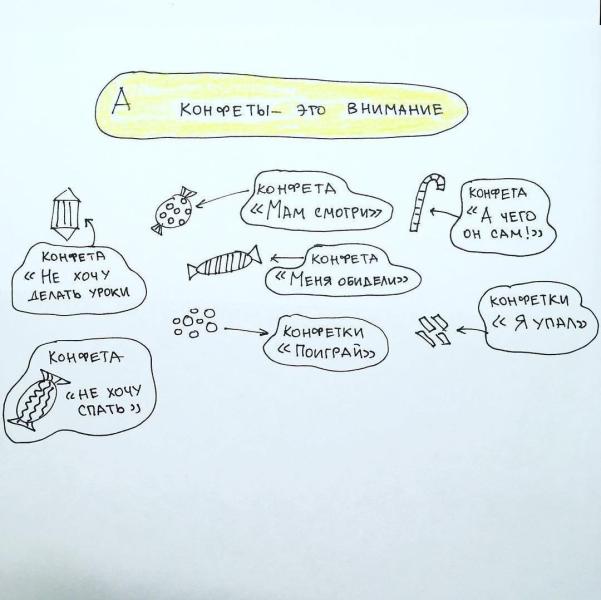 А
КОНФЕТЫ – ЭТО ВНИМАНИЕ
КОНФЕТА
«МАМ СМОТРИ»
КОНФЕТА
«А ЧЕГО
ОН САМ!»
КОНФЕТА
«НЕ ХОЧУ
ДЕЛАТЬ УРОКИ
КОНФЕТА
«МЕНЯ ОБИДЕЛИ»
КОНФЕТКИ
«ПОИГРАЙ»
КОНФЕТКИ
«Я УПАЛ»
КОНФЕТА
«НЕ ХОЧУ
СПАТЬ»